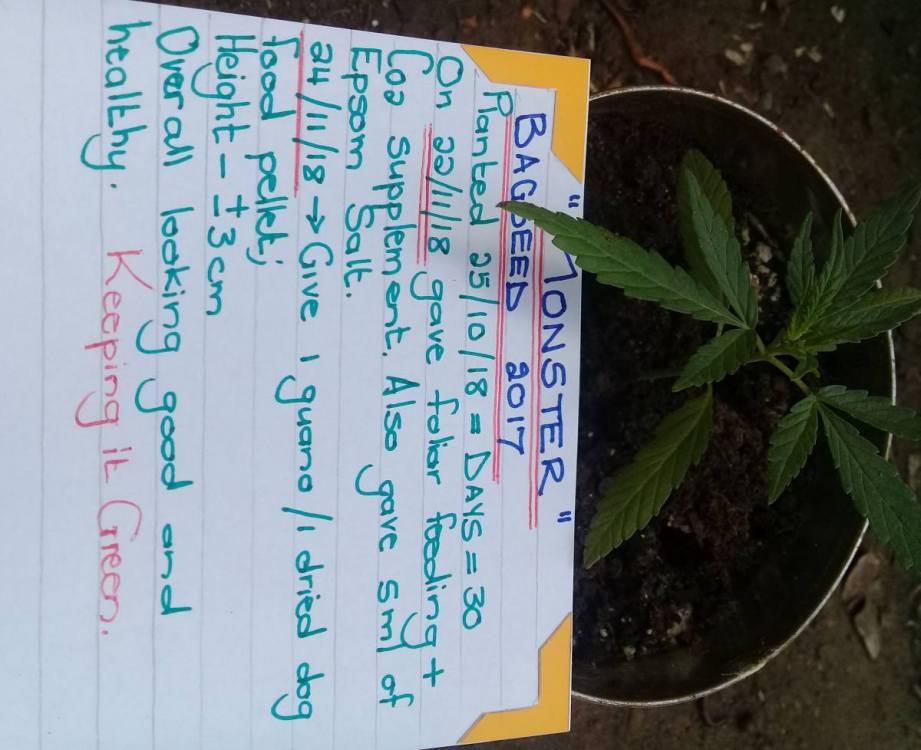 "MONSTER"
BAGSEED 2017
Planted 25/10/18 = DAYS = 30
On 22/11/18 gave foliar feeding +
Co2 Supplement. Also gave 5ml of
Epsom Salt.
24/11/18 → Give 1 guano/1 dried dog
food pellet;
Height - ± 3cm
Overall looking good and
healthy. Keeping it Green.